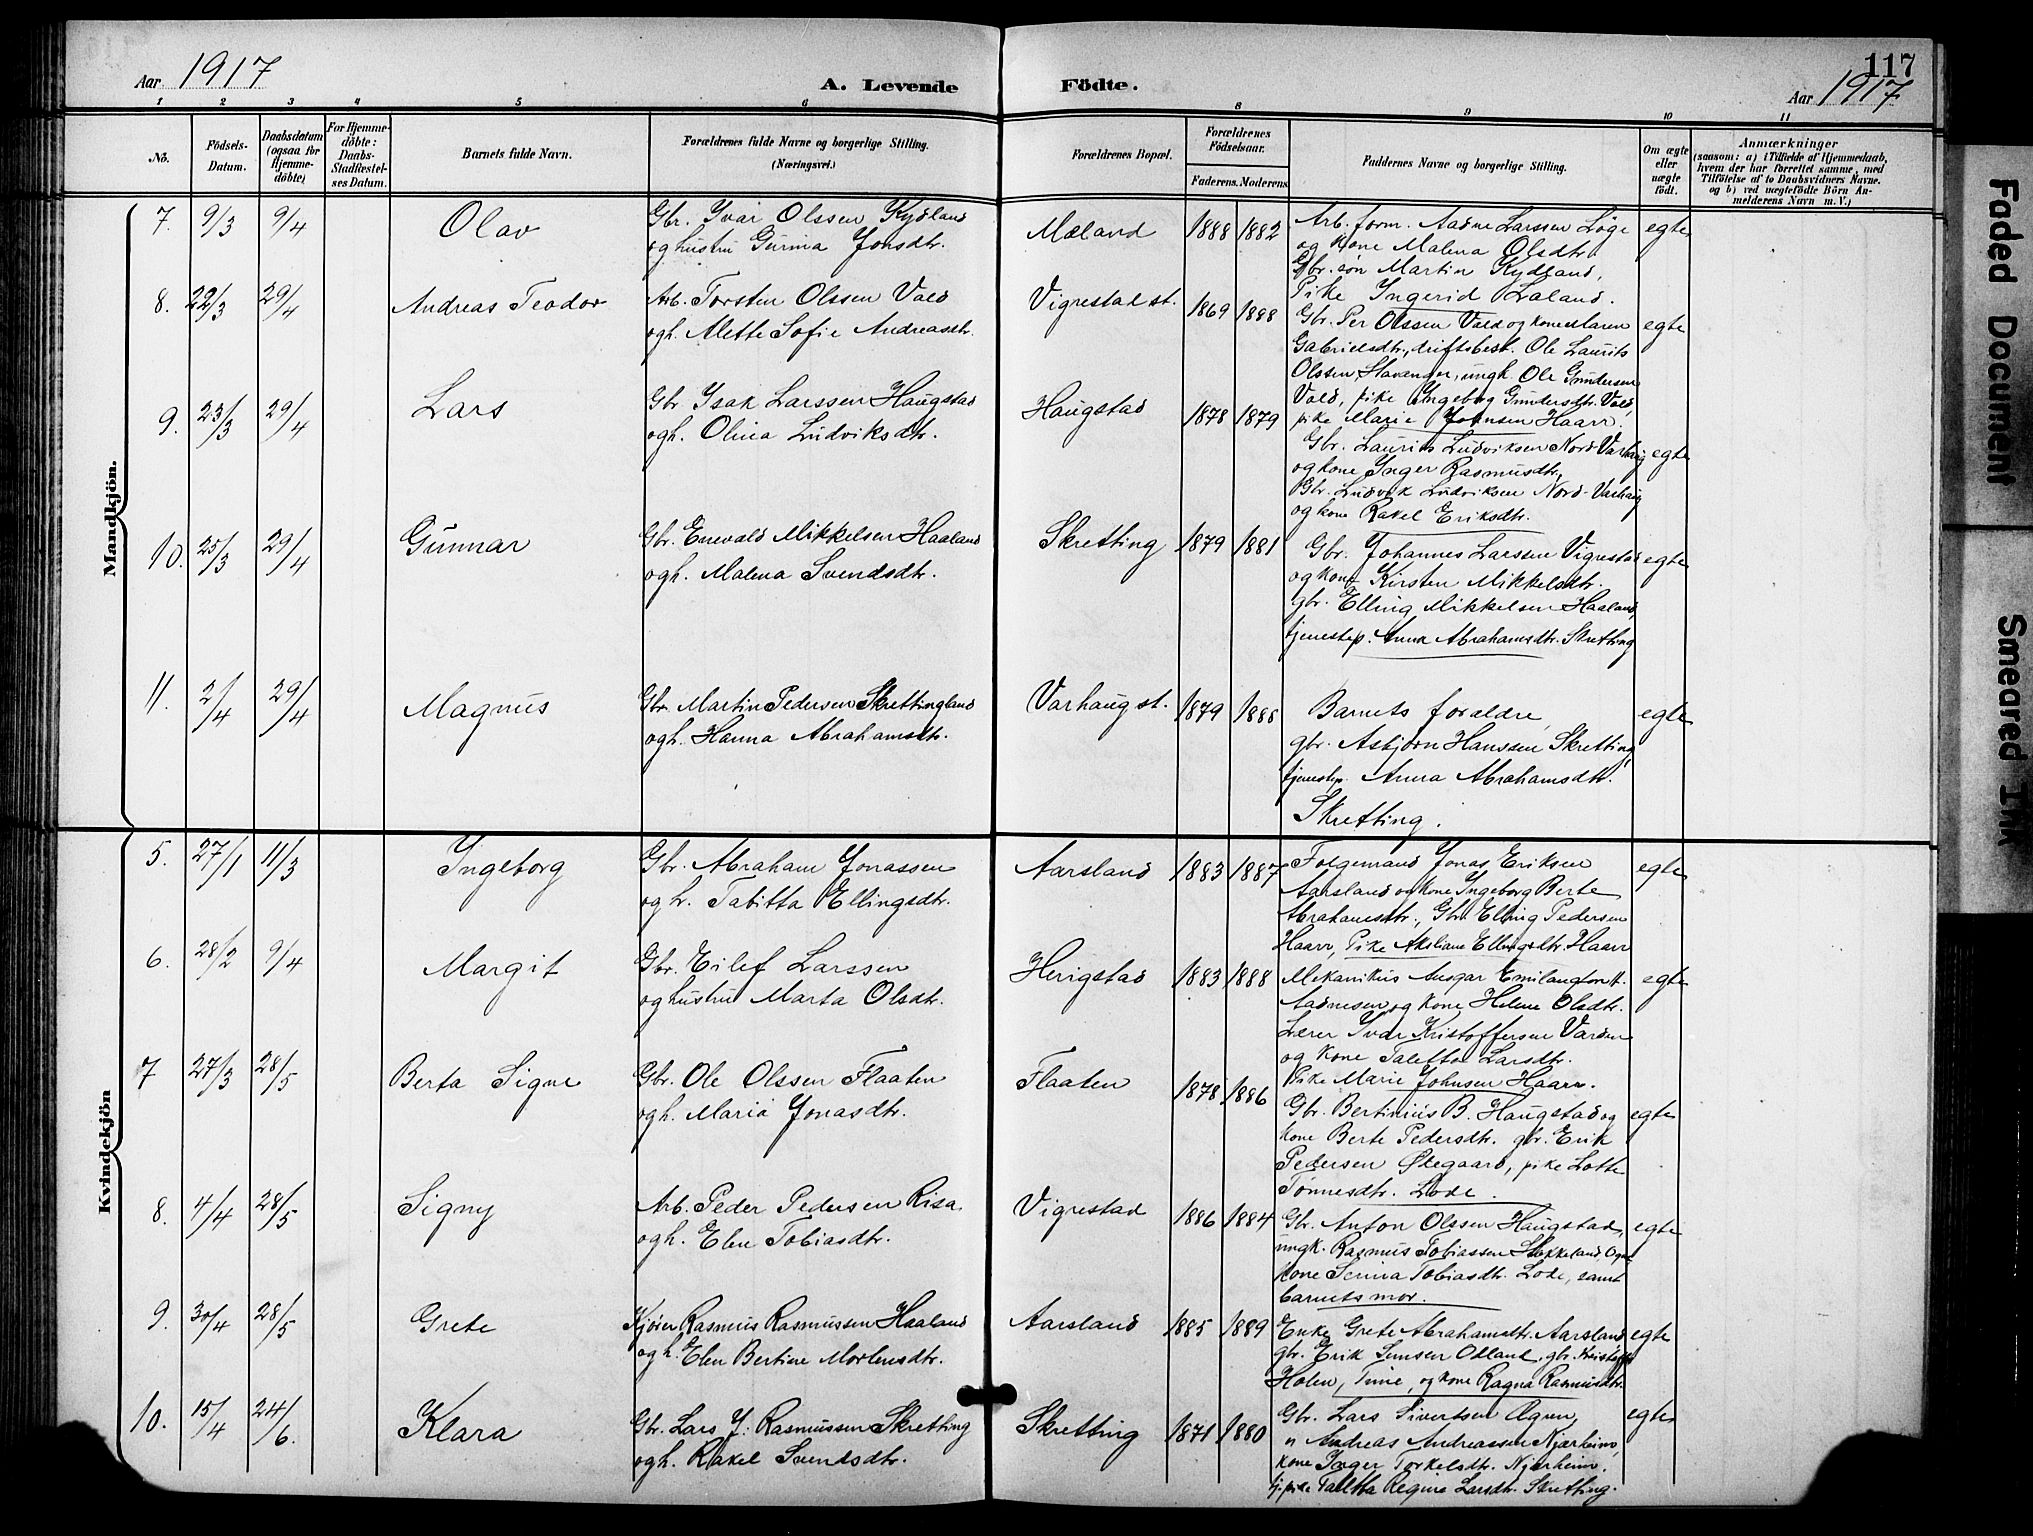 117
Aar 1917
A. Levende Födte.
Aar 1917
1 2 3 4 5 6 8 9 10 11
No.
Födsels-Datum.
Daabsdatum (ogsaa for Hjemme-döbte)
For Hjemme-döbte: Daabs-Stadfæstel-ses Datum.
Barnets fulde Navn.
Forældrenes fulde Navne og borgerlige Stilling. (Næringsvei.)
Forældrenes Bopæl.
Forældrenes Födselsaar.
Faderens. Moderens.
Faddernes Navne og borgerlige Stilling.
Om ægte eller uægte födt.
Anmærkninger
(saasom: a) i Tilfælde af Hjemmedaab,
hvem der har forrettet samme, med
Tilföielse af to Daabsvidners Navne.
og b) ved uægtefödte Börn An-
melderens Navn m. V.)
Mandkjön.
7. 9/3 9/4 Olav
Gbr. Ivar Olssen Kydland
og hustru Gurina Jonsdtr.
Mæland 1888 1882
Arb. form. Aadne Larssen Löge
og kone Malena Olsdtr.
Gbr. søn Martin Kydland,
Pike Ingerid Laland.
egte
8. 22/3 29/4 Andreas Teodor
Arb. Torsten Olssen Vold
ogh. Alette Sofie Andreasdtr.
Vigrestad st. 1869 1888
Gbr. Per Olssen Vold og kone Maren
Gabrielsdtr., driftsbest. Ole Laurits
Olssen, Stavanger, ungk. Ole Gundersen
Vold, pike Ingeborg Gundersdtr. Vold,
pike Marie Johnsen Haarr.
egte
9. 23/3 29/4 Lars
Gbr Isak Larssen Haugstad
ogh. Olina Ludviksdtr.
Haugstad 1878 1879
Gbr. Laurits Ludviksen Nord-Varhaug
og kone Inger Rasmusdtr,
Gbr. Ludvik Ludviksen Nord-Varhaug
og kone Rakel Eriksdtr.
egte
10. 25/3 29/4 Gunnar
Gbr. Enevald Mikkelsen Haaland
ogh. Malena Svendsdtr.
Skretting 1879 1881
Gbr. Johannes Larssen Vigrestad
og kone Kirsten Mikkelsdtr.
gbr. Elling Mikkelsen Haaland,
tjenestep. Anna Abrahamsdtr. Skretting
egte
11. 2/4 29/4 Magnus
Gbr. Martin Pedersen Skrettingland
ogh. Hanna Abrahamsdtr.
Varhaug st. 1879 1888
Barnets forældre,
gbr. Asbjørn Hanssen Skretting,
tjenestep. Anna Abrahamsdtr.
Skretting.
egte
Kvindekjön
5. 27/1 11/3 Ingeborg
Gbr. Abraham Jonassen
og h. Tabitta Ellingsdtr.
Aarsland 1883 1887
Folgemand Jonas Eriksen
Aarsland og kone Ingeborg Berte
Abrahamsdtr., Gbr. Elling Pedersen
Haarr, Pike Akseliane Ellingsdtr. Haarr
egte
6. 28/2 9/4 Margit
Gbr. Eilef Larssen
og hustru Marta Olsdtr.
Herigstad 1883 1888
Mekanikus Ansgar
Aadnesen og kone Helene Olsdtr.
Lærer Ivar Kristoffersen Varden
og kone Taletta Larsdtr.
Pike Marie Johnsen Haarr.
egte
7 27/3 28/5 Berta Signe
Gbr. Ole Olssen Flaaten
ogh. Maria Jonasdtr.
Flaaten 1878 1886
Gbr. Bertinius B. Haugstad og
kone Berte Pedersdtr. gbr. Erik
Pedersen Østegaard, pike Lotte
Tønnesdtr. Lode.
egte
8. 4/4 28/5 Signy
Arb. Peder Pedersen Risa
ogh. Elen Tobiasdtr.
Vigrestad 1886 1884
Gbr. Anton Olssen Haugstad,
ungk. Rasmus Tobiassen Stokkeland, Ogna
kone Serina Tobiasdtr. Lode, samt
barnets mor.
egte
9. 30/4 28/5 Grete
Kjører Rasmus Rasmussen Haaland
ogh. Elen Bertine Mortensdtr.
Aarsland 1885 1889
Enke Grete Abrahamsdtr. Aarsland
gbr. Erik Odland, gbr. Kristoffer
Holen, Time, og kone Ragna Rasmusdtr.
egte
10. 15/4 24/6. Klara
Gbr. Lars J. Rasmussen Skretting
ogh. Rakel Svendsdtr.
Skretting 1871 1880
Gbr. Lars Sivertsen
" Andreas Andreassen Njærheim,
kone Inger Torkelsdtr. Njærheim.
tj. pike Taletta Regine Larsdtr. Skretting.
egte
Faded Document
Smeared Ink